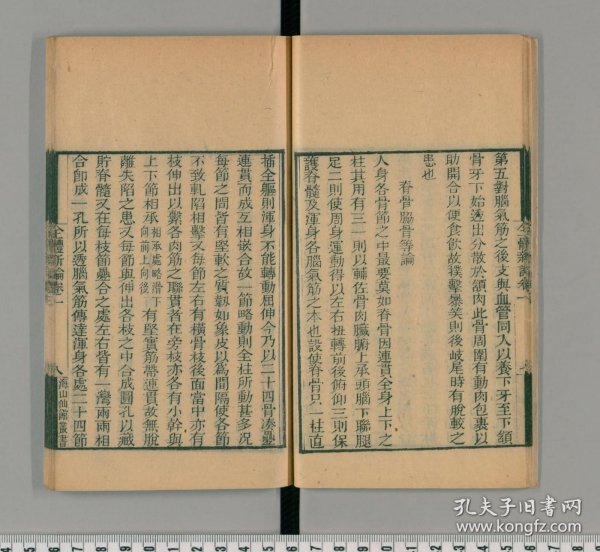 第五對腦氣筋之後支與血管同入以養下牙至下頷
骨牙下始透出分散於頷肉此骨周圍有動肉包裹以
助開合以便食飲故撲擊暴笑則後岐尾時有脫較之
患也
脊骨脇骨等論
人身各骨節之中最要莫如脊骨因連貫全身上下之
柱其用有三一則以輔佐骨肉臟腑上承頭腦下聯腿
足二則使周身運動得以左右扭轉前後俯仰三則保
護脊髓及渾身各腦氣筋之本也設使脊骨只一柱直
插全軀則渾身不能轉動屈伸今乃以二十四骨湊疊
連貫而成互相嵌合故一節略動則全柱所動甚多況
每節之間皆有堅軟之質韌如象皮以為間隔使各節
不致軋陷相擊又每節左右有橫骨枝後面當中亦有
枝伸出以繫各肉筋之聯貫者在旁枝亦各有小幹與
上下節相承相承處略滑下向前上向後有堅實筋帶連貫故無脫
離失陷之患又每節與伸出各枝之中合成圓孔以藏
貯脊髓又在每枝節疊合之處左右皆有一灣兩兩相
合即成一孔所以透腦氣筋傳達渾身各處二十四節
全體新論卷一
八
海山仙館叢書
孔夫子旧书网
www.kongfz.com